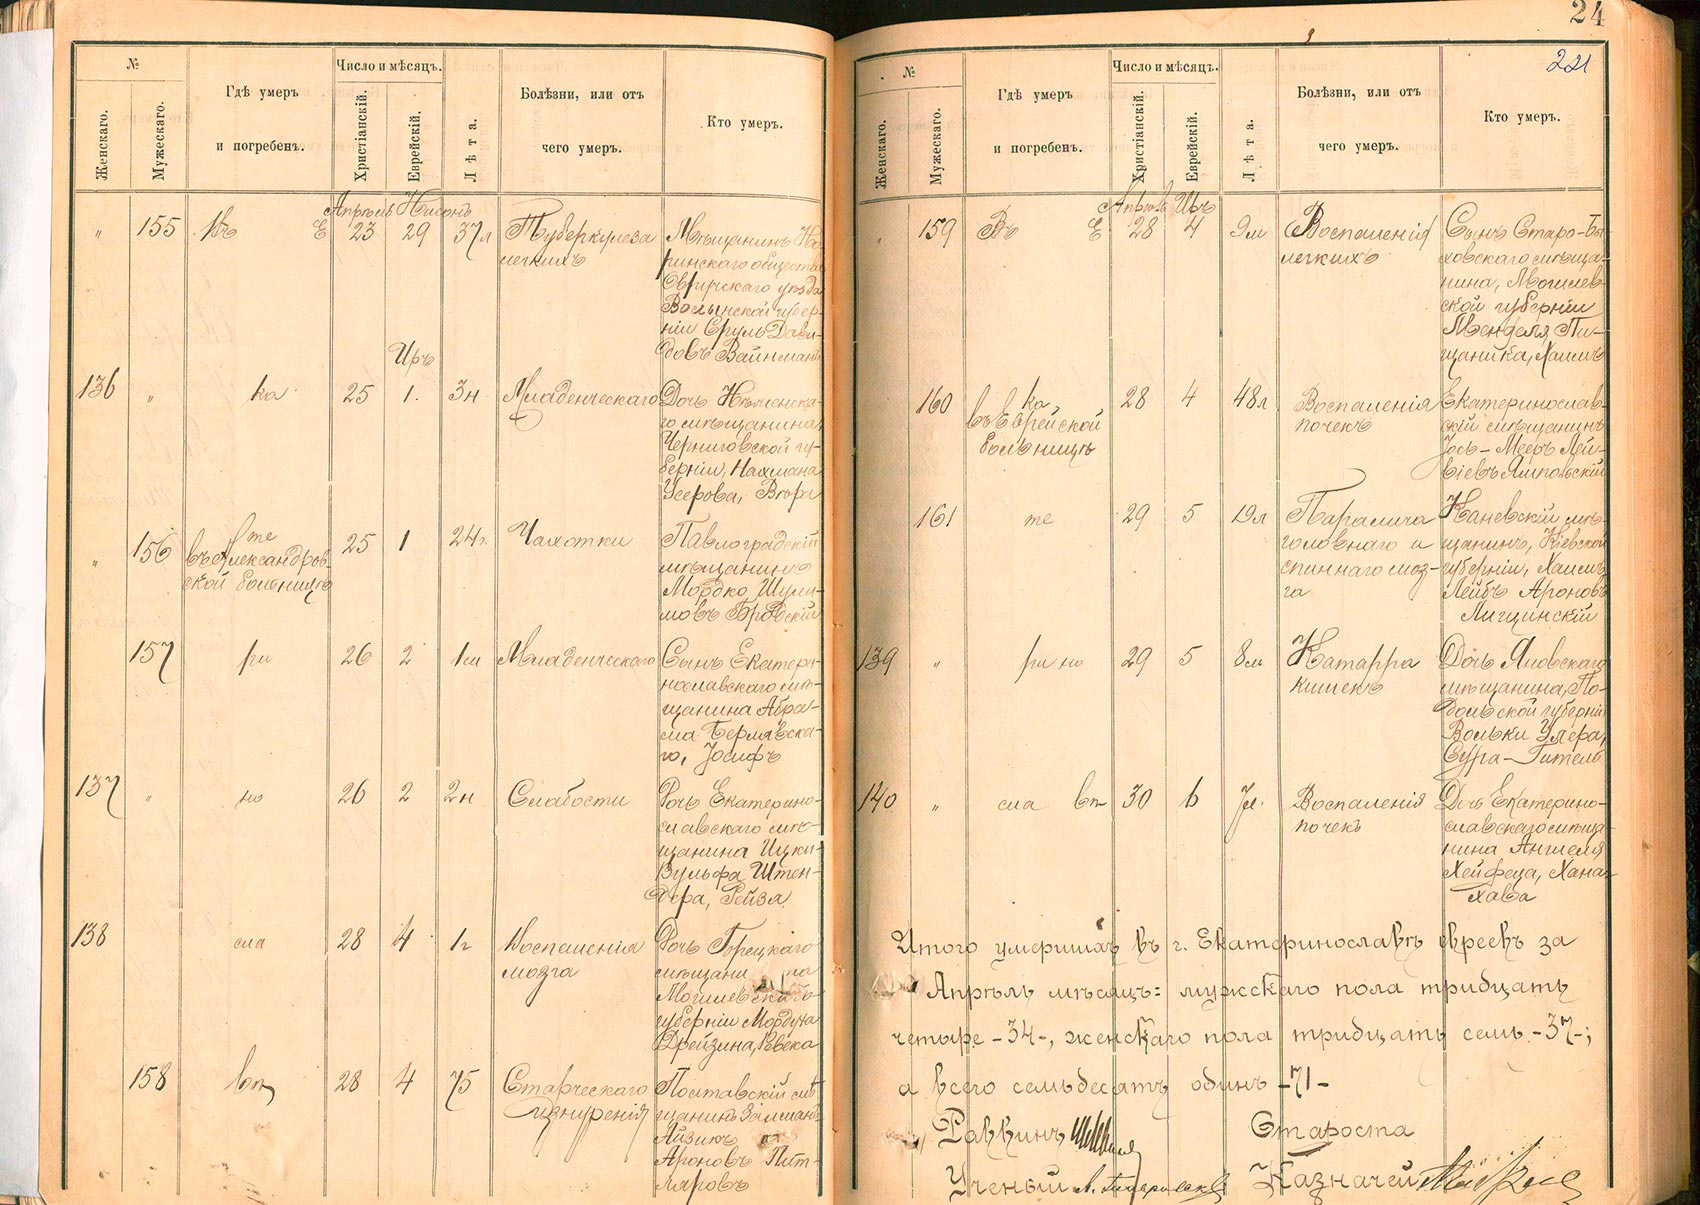 №
Число и мѣсяцъ.
Женскаго.
Мужескаго.
Гдѣ умеръ
и погребенъ.
Христіанскій.
Еврейскій.
Лѣта.
Болѣзни, или отъ
чего умеръ.
Кто умеръ.
Апрѣль Нисонъ
" 155 Въ Е 23 29 37л Туберкулеза
легкихъ
Мѣщанинъ
ринскаго общества
Овручскаго уѣзда
Волынской губер-
ніи Сруль Дави-
довъ Вайнманъ
Иръ
136 " ка 25 1. 3н Младенческаго
Дочь Нѣженска-
го мѣщанина,
Черниговской гу-
берніи, Нахмана
Усерова,
" 156 те
въ Александров-
ской больницѣ
25 1 24г Чахотки
Павлоградскій
мѣщанинъ
Мордко Шули-
мовъ Бродскій
157 ри 26 2 1м Младенческаго
Сынъ Екатери-
нославскаго мѣ-
щанина Абра-
ма Берлявска-
го, Іосифъ
137 " но 26 2 2н Слабости
Дочь Екатерино-
славскаго мѣ-
щанина Ицки-
Вульфа Штен-
дера, Рейзя
138 сла 28 4 1г Воспаленія
мозга
Дочь Горецкаго
мѣщанина
Могилевской
губерніи Мордуха
Дрейзина, Ревека
158 вѣ 28 4 75 Старческаго
изнуренія
Полтавскій мѣ-
щанинъ Залманъ-
Айзикъ
Ароновъ Пит-
ляровъ
24
221
№
Число и мѣсяцъ.
Женскаго.
Мужескаго.
Гдѣ умеръ
и погребенъ.
Христіанскій.
Еврейскій.
Лѣта.
Болѣзни, или отъ
чего умеръ.
Кто умеръ.
Апрѣль Иръ
" 159 Въ Е 28 4 9м Воспаленія
легкихъ
Сынъ Старо-Бы-
ховскаго мѣща-
нина, Могилев-
ской губерніи
Менделя Пи-
щаника, Хаимъ
160 ка
въ Еврейской
больницѣ
28 4 48л Воспаленія
почекъ
Екатеринослав-
скій мѣщанинъ
Іось-Мееръ Лей-
бовъ Ямпольскій
161 те 29 5 19л Паралича
головнаго и
спиннаго моз-
га
Каневскій мѣ-
щанинъ, Кіевской
губерніи, Хаимъ
Лейбъ Ароновъ
Лищинскій
139 " ри но 29 5 8м Катарра
кишекъ
Дочь Яловскаго
мѣщанина, По-
дольской губерніи
Вольки Улера,
Сура-Гитель
140 " сла вѣ 30 6 7л. Воспаленія
почекъ
Дочь Екатерино-
славскаго мѣща-
нина Аншеля
Хейфеца, Хана-
Хава
Итого умершихъ въ г. Екатеринославѣ евреевъ за
Апрѣль мѣсяцъ: мужскаго пола тридцать
четыре -34-, женскаго пола тридцать семь -37-;
а всего семьдесятъ одинъ -71-
Раввинъ
Староста
Ученый
Казначей